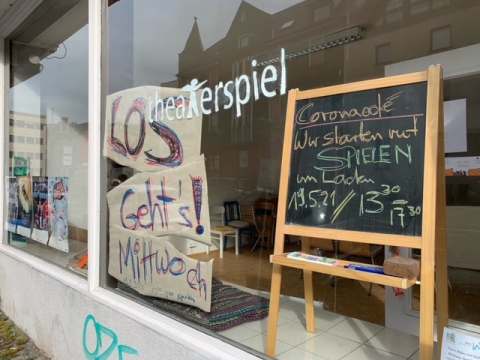 theaterspiel
LOS
Geht's!
Mittwoch
Coronaadé
Wir starten mit
SPIELEN
im Laden
19.5.21 // 13³⁰
- 17³⁰